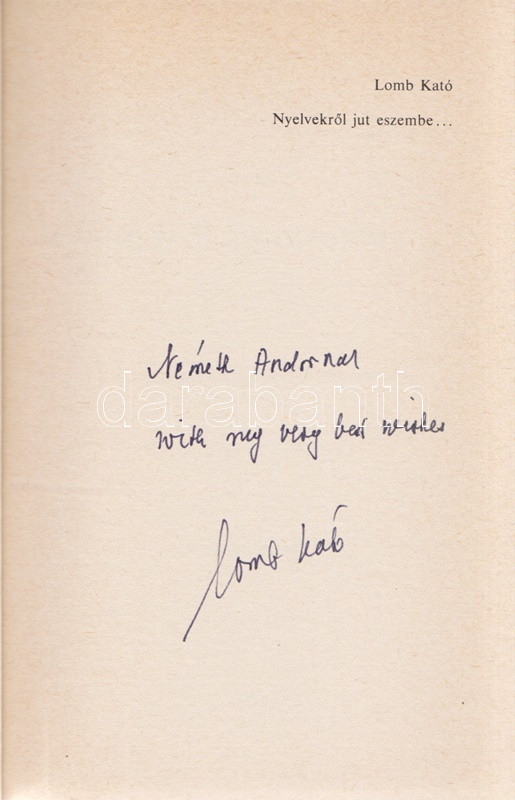 Lomb Kató
Nyelvekről jut eszembe...
Németh Andornak
darabanth
with my very best wishes
Lomb Kató